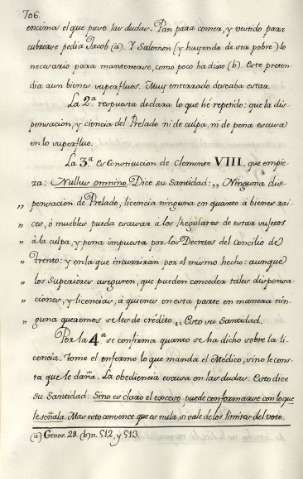 706.
encima el que puso las dudas. Pan para comer, y vestido para
cubrirse pedia Jacob (a). Y Salomon (y huyendo de ser pobre) lo
necesario para mantenerse, como poco ha dixe (b). Este preten-
dia aun bienes superfluos. Muy enterrado dexaba estar.
La 2.ª respuesta declara lo que he repetido: que la dis-
pensacion, y ciencia del Prelado ni de culpa, ni de pena escusa
en lo superfluo.
La 3.ª es Constitucion de Clemente VIII. que empie-
za: Nullus omnino. Dice su Santidad: „ Ninguna dis-
„ pensacion de Prelado, licencia ninguna en quanto a bienes rai-
„ ces, ó muebles pueda escusar á los Regulares de estas visitas
„ á la culpa, y pena impuesta por los Decretos del Concilio de
„ Trento: y en la que incurrirán por el mismo hecho: aunque
„ los Superiores aseguren, que pueden conceder tales dispensa-
„ ciones, y licencias, á quienes en esta parte en manera nin-
„ guna queremos se les dé crédito „ Esto su Santidad.
Por la 4.ª se confirma quanto se ha dicho sobre la li-
cencia. Tome el enfermo lo que manda el Médico, sino le cons-
ta que le daña. La obediencia escusa en las dudas. Esto dice
su Santidad: Sino es claro el exceso puede conformarse con lo que
le señala. Mas si esto conoce que es nula, si sale de los limites del voto.
(a) Genes. 28. (b) n. 512. y 513.